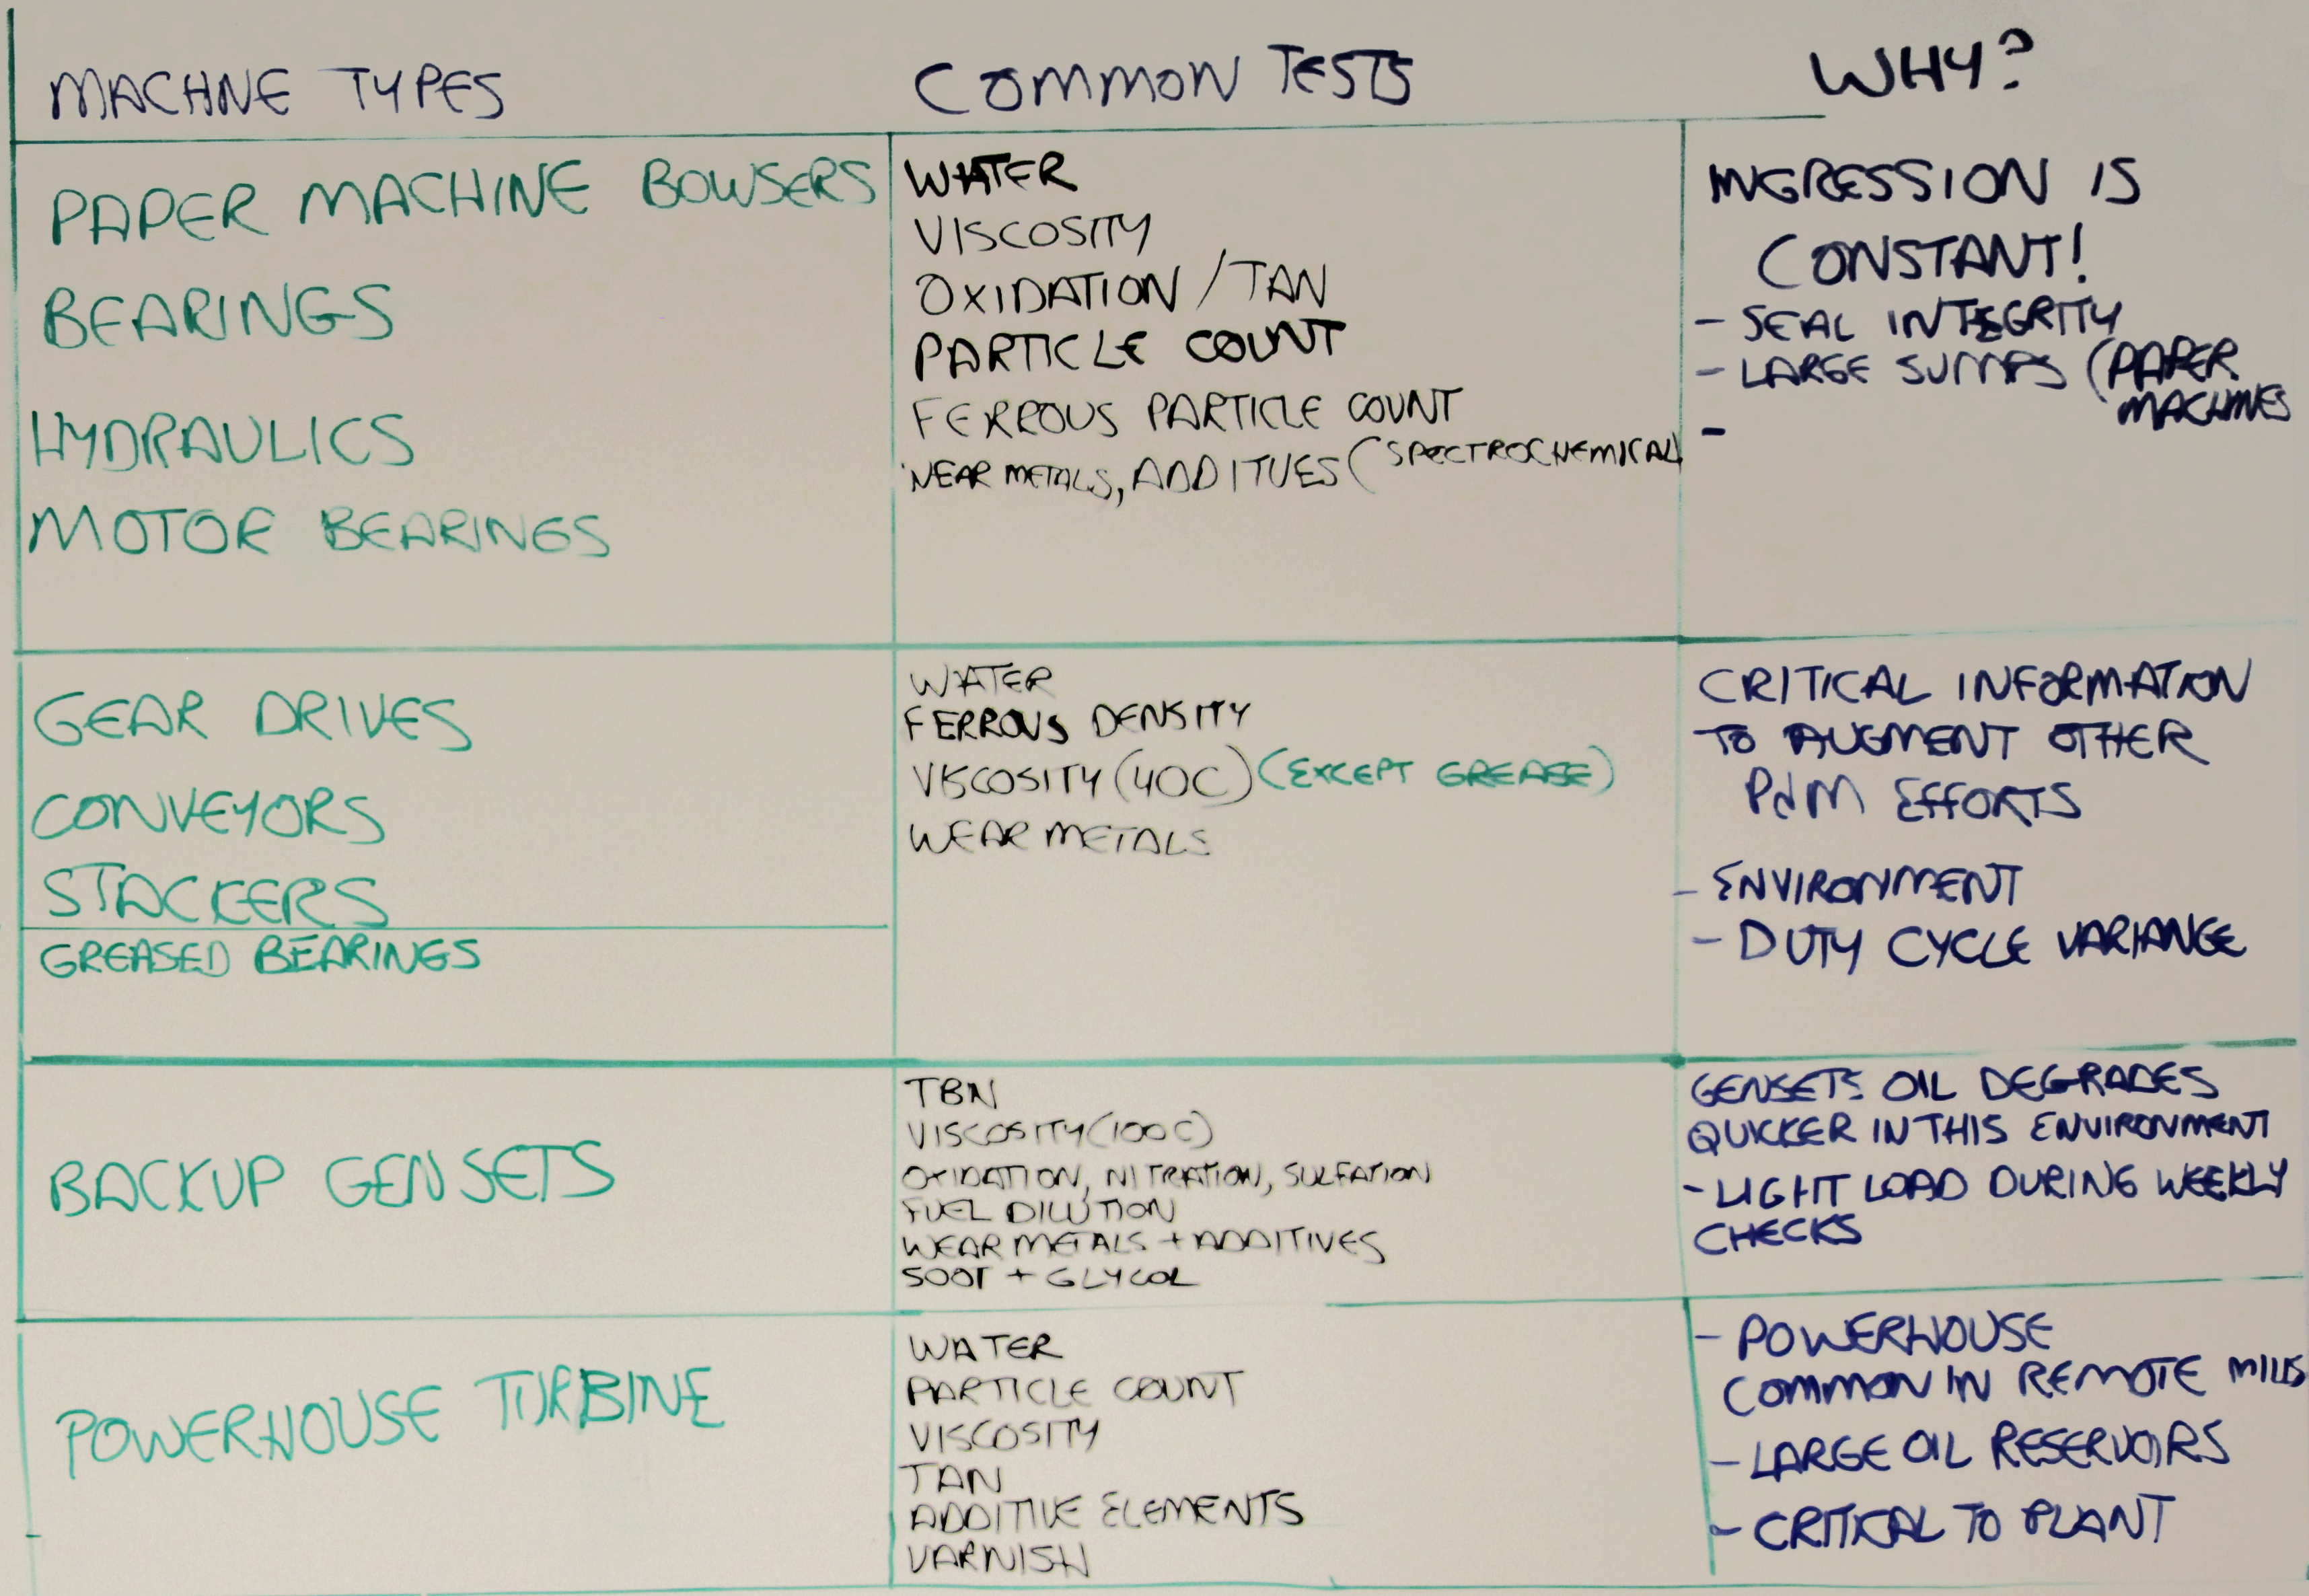 MACHINE TYPES
COMMON TESTS
WHY?
PAPER MACHINE BOWSERS
BEARINGS
HYDRAULICS
MOTOR BEARINGS
WATER
VISCOSITY
OXIDATION / TAN
PARTICLE COUNT
FERROUS PARTICLE COUNT
WEAR METALS, ADDITIVES (SPECTROCHEMICAL)
INGRESSION IS
CONSTANT!
- SEAL INTEGRITY
- LARGE SUMPS (PAPER
MACHINES
-
GEAR DRIVES
CONVEYORS
STACKERS
GREASED BEARINGS
WATER
FERROUS DENSITY
VISCOSITY (40C) (EXCEPT GREASE)
WEAR METALS
CRITICAL INFORMATION
TO AUGMENT OTHER
PdM EFFORTS
- ENVIRONMENT
- DUTY CYCLE VARIANCE
BACKUP GENSETS
TBN
VISCOSITY (100C)
OXIDATION, NITRATION, SULFATION
FUEL DILUTION
WEAR METALS + ADDITIVES
SOOT + GLYCOL
GENSETS OIL DEGRADES
QUICKER IN THIS ENVIRONMENT
- LIGHT LOAD DURING WEEKLY
CHECKS
POWERHOUSE TURBINE
WATER
PARTICLE COUNT
VISCOSITY
TAN
ADDITIVE ELEMENTS
VARNISH
- POWERHOUSE
COMMON IN REMOTE MILLS
- LARGE OIL RESERVOIRS
- CRITICAL TO PLANT